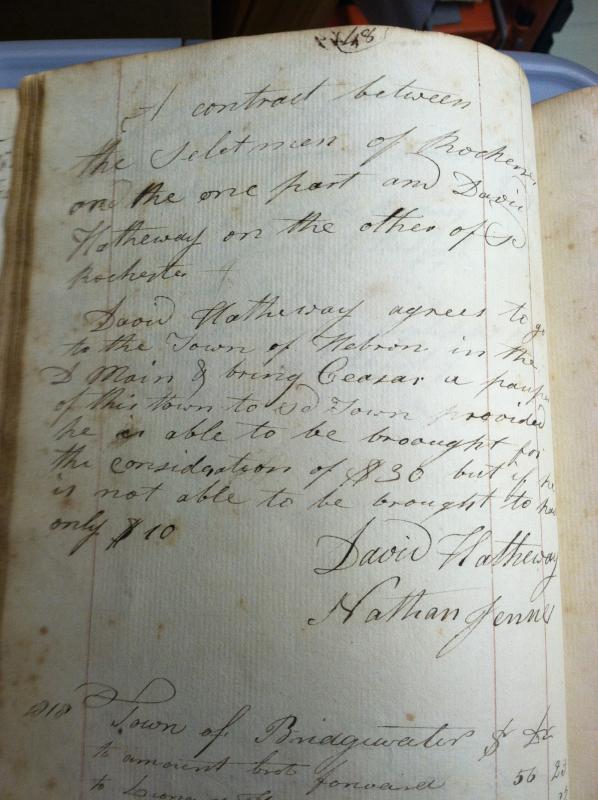 48
A contract between
the Selctmen of Rochester
on the one part and David
Hatheway on the other of Sd
Rochester
David Hatheway agrees to go
to the Town of Hebron in the
D Main & bring Ceasar a pauper
of this town to sd Town provided
he is able to be broought for
the consideration of $30 but if he
is not able to be brought to have
only $10
David Hatheway
Nathan Jenne
1818 Town of Bridgwater $ Dr
to amount brot forward 56
to